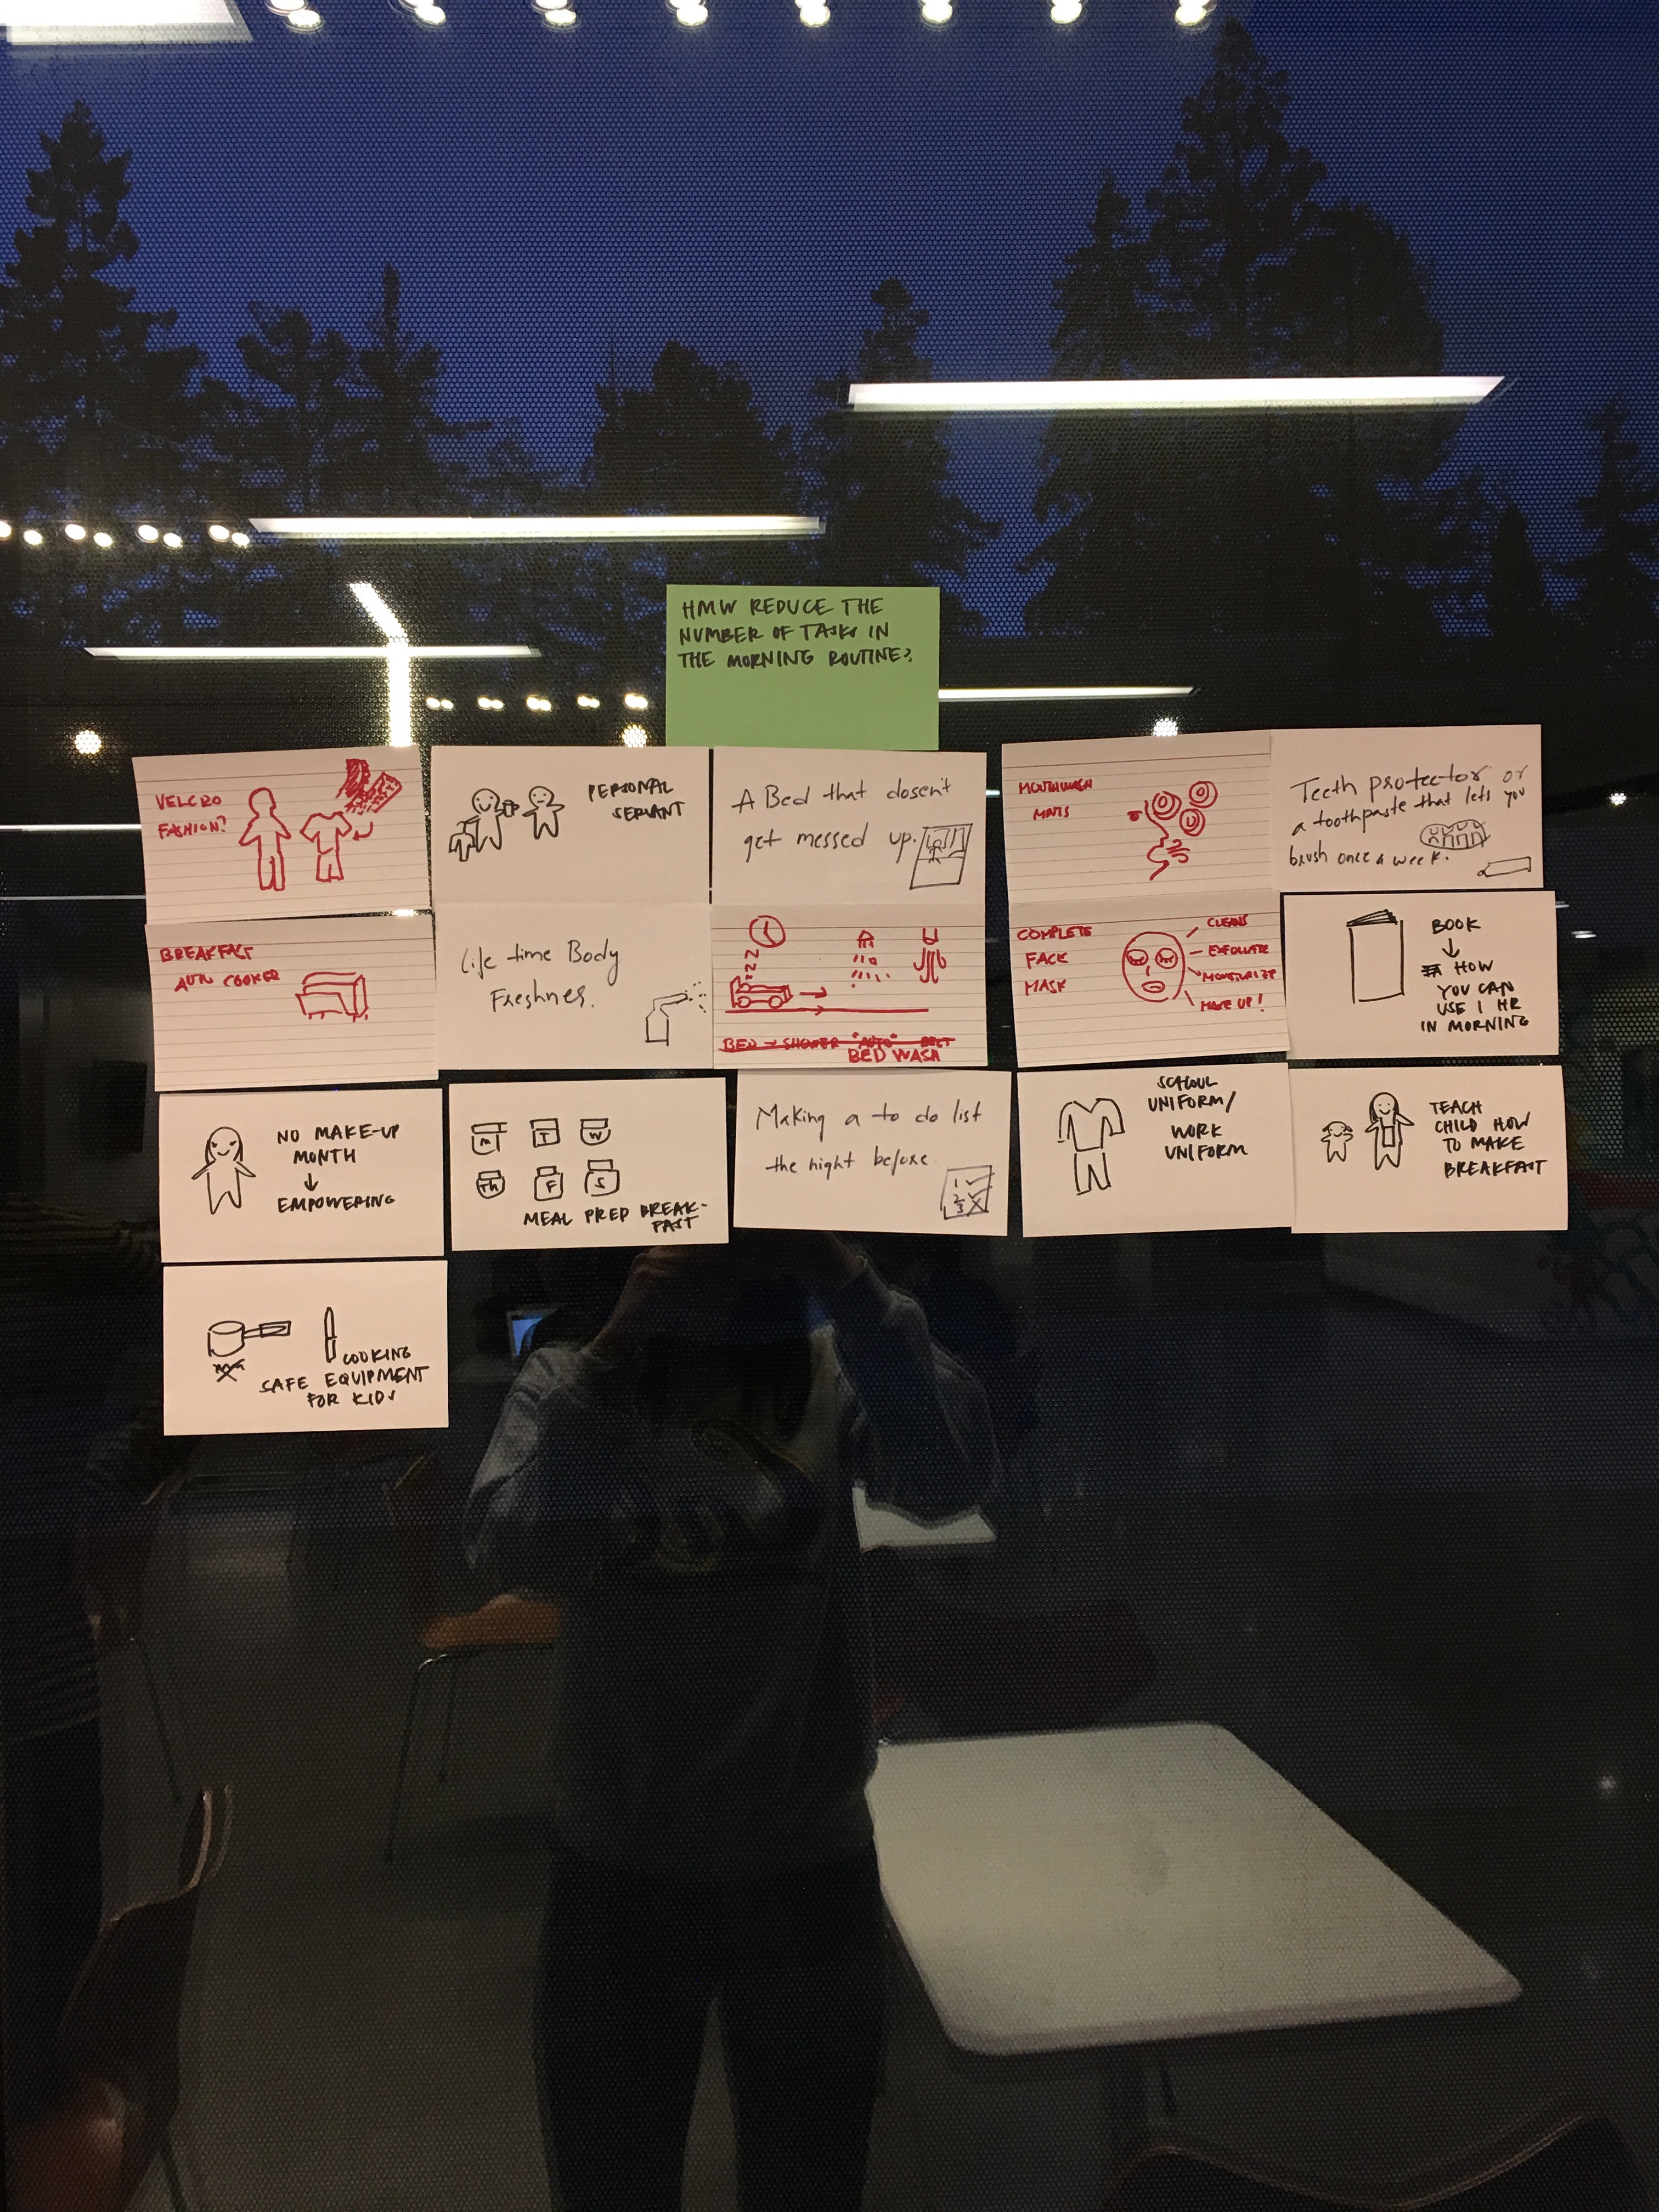 HMW REDUCE THE
NUMBER OF TASKS IN
THE MORNING ROUTINE?
VELCRO
FASHION?
PERSONAL
SERVANT
A Bed that dosen't
get messed up.
MOUTHWASH
MINTS
Teeth protector or
a toothpaste that lets you
brush once a week.
BREAKFAST
AUTO COOKER
Life time Body
Freshnes.
ZZZ
BED → SHOWER "AUTO" BELT
BED WASH
COMPLETE
FACE
MASK
CLEANS
EXFOLIATE
MOISTURIZE
MAKE UP!
BOOK
↓
HOW
YOU CAN
USE 1 HR
IN MORNING
NO MAKE-UP
MONTH
↓
EMPOWERING
M T W
Th F S
MEAL PREP BREAK-
FAST
Making a to do list
the night before.
1
2
3
SCHOOL
UNIFORM/
WORK
UNIFORM
TEACH
CHILD HOW
TO MAKE
BREAKFAST
COOKING
SAFE EQUIPMENT
FOR KIDS